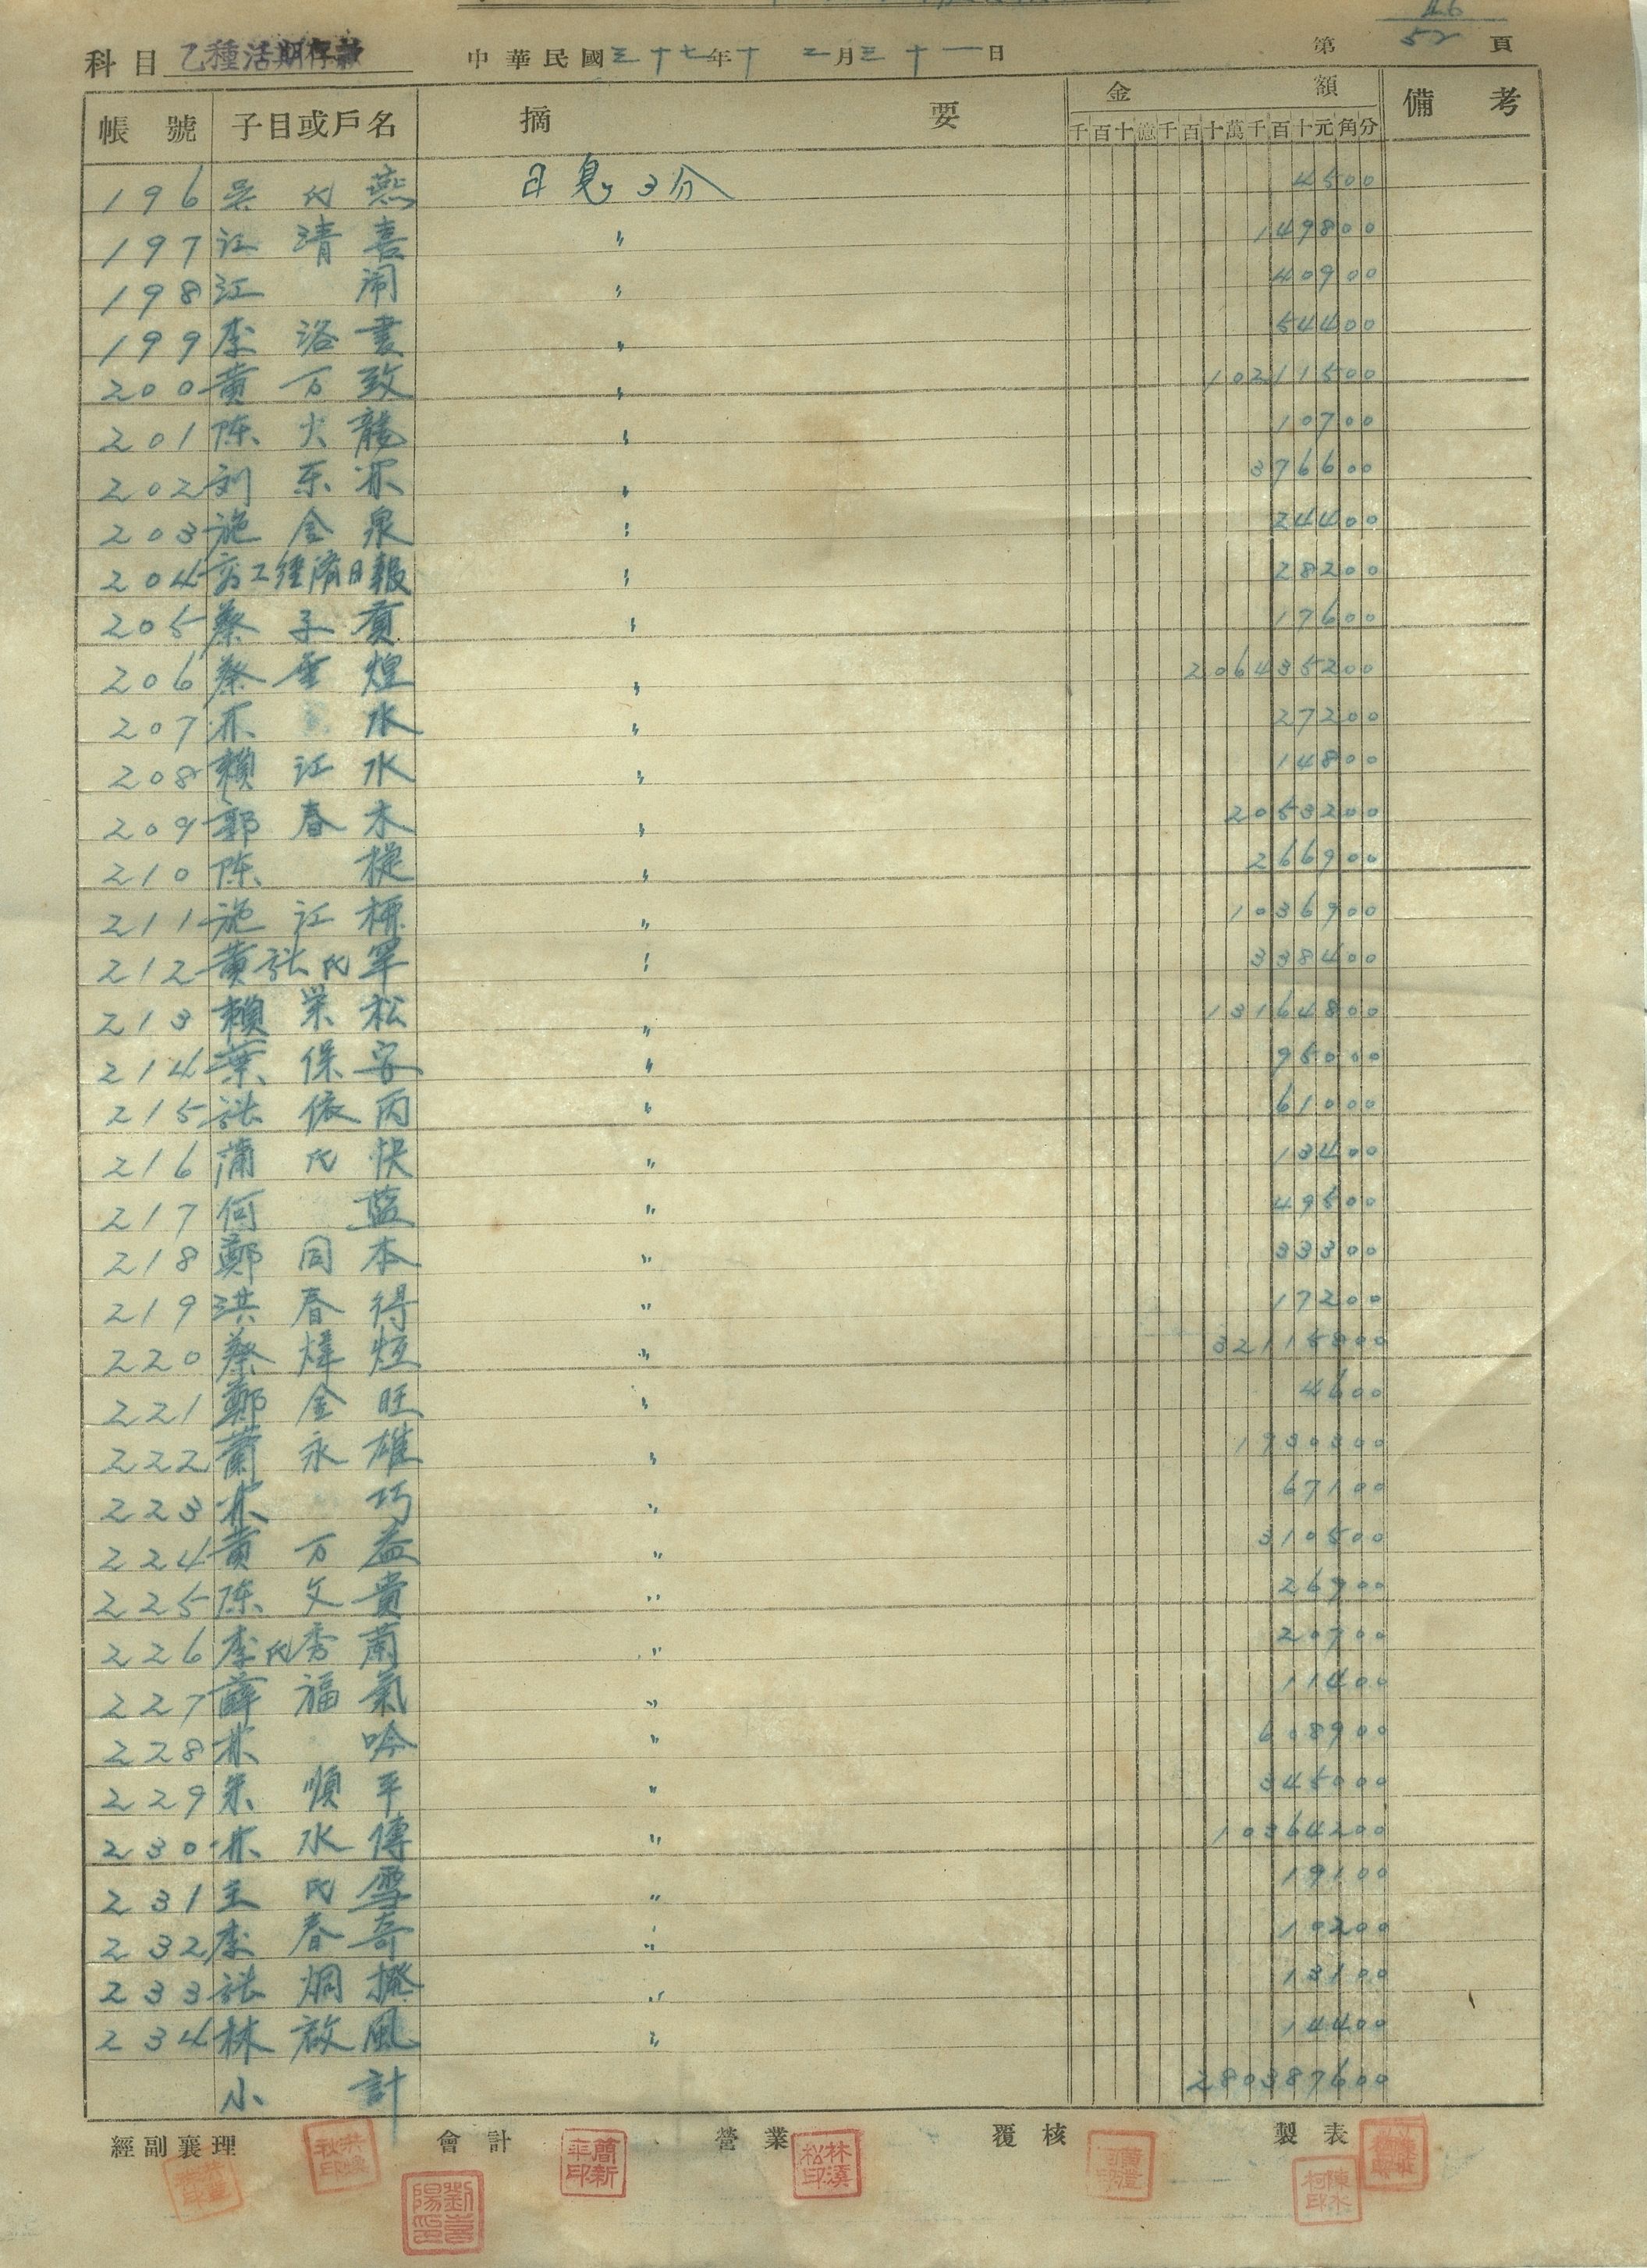 46
科目 乙種活期存款 中華民國三十七年十二月三十一日 第 52 頁
帳號 子目或戶名 摘要 金額 備考
千百十億千百十萬千百十元角分
196 吳氏燕 日息3分 4500
197 江清喜 〃 149800
198 江閙 〃 40900
199 李洛書 〃 54400
200 黄万致 〃 10211500
201 陈火龍 〃 10700
202 刘 〃 376600
203 施金泉 〃 24400
204 商工經濟日報 〃 28200
205 蔡子貢 〃 17600
206 蔡垂煌 〃 206435200
207 水 〃 27200
208 賴江水 〃 14800
209 郭春木 〃 2053200
210 陈 〃 266900
211 施江標 〃 1036900
212 黄張氏罕 〃 338400
213 賴栄松 〃 13164800
214 葉保客 〃 95000
215 張依丙 〃 61000
216 蒲氏快 〃 13400
217 何藍 〃 49500
218 鄭同本 〃 33300
219 洪春得 〃 17200
220 蔡煒恆 〃 32115800
221 鄭金旺 〃 4600
222 永雄 〃 1930300
223 巧 〃 67100
224 黄万益 〃 310500
225 陈文貴 〃 26900
226 李氏秀蘭 〃 20700
227 薛福氣 〃 11400
228 吟 〃 608900
229 順平 〃 345000
230 水傳 〃 10364200
231 王氏雪 〃 19100
232 李春奇 〃 10200
233 張炯 〃 13100
234 林啟風 〃 14400
小計 280387600
經副襄理 會計 營業 覆核 製表
簡新平印
林漢松印
陳水柯印